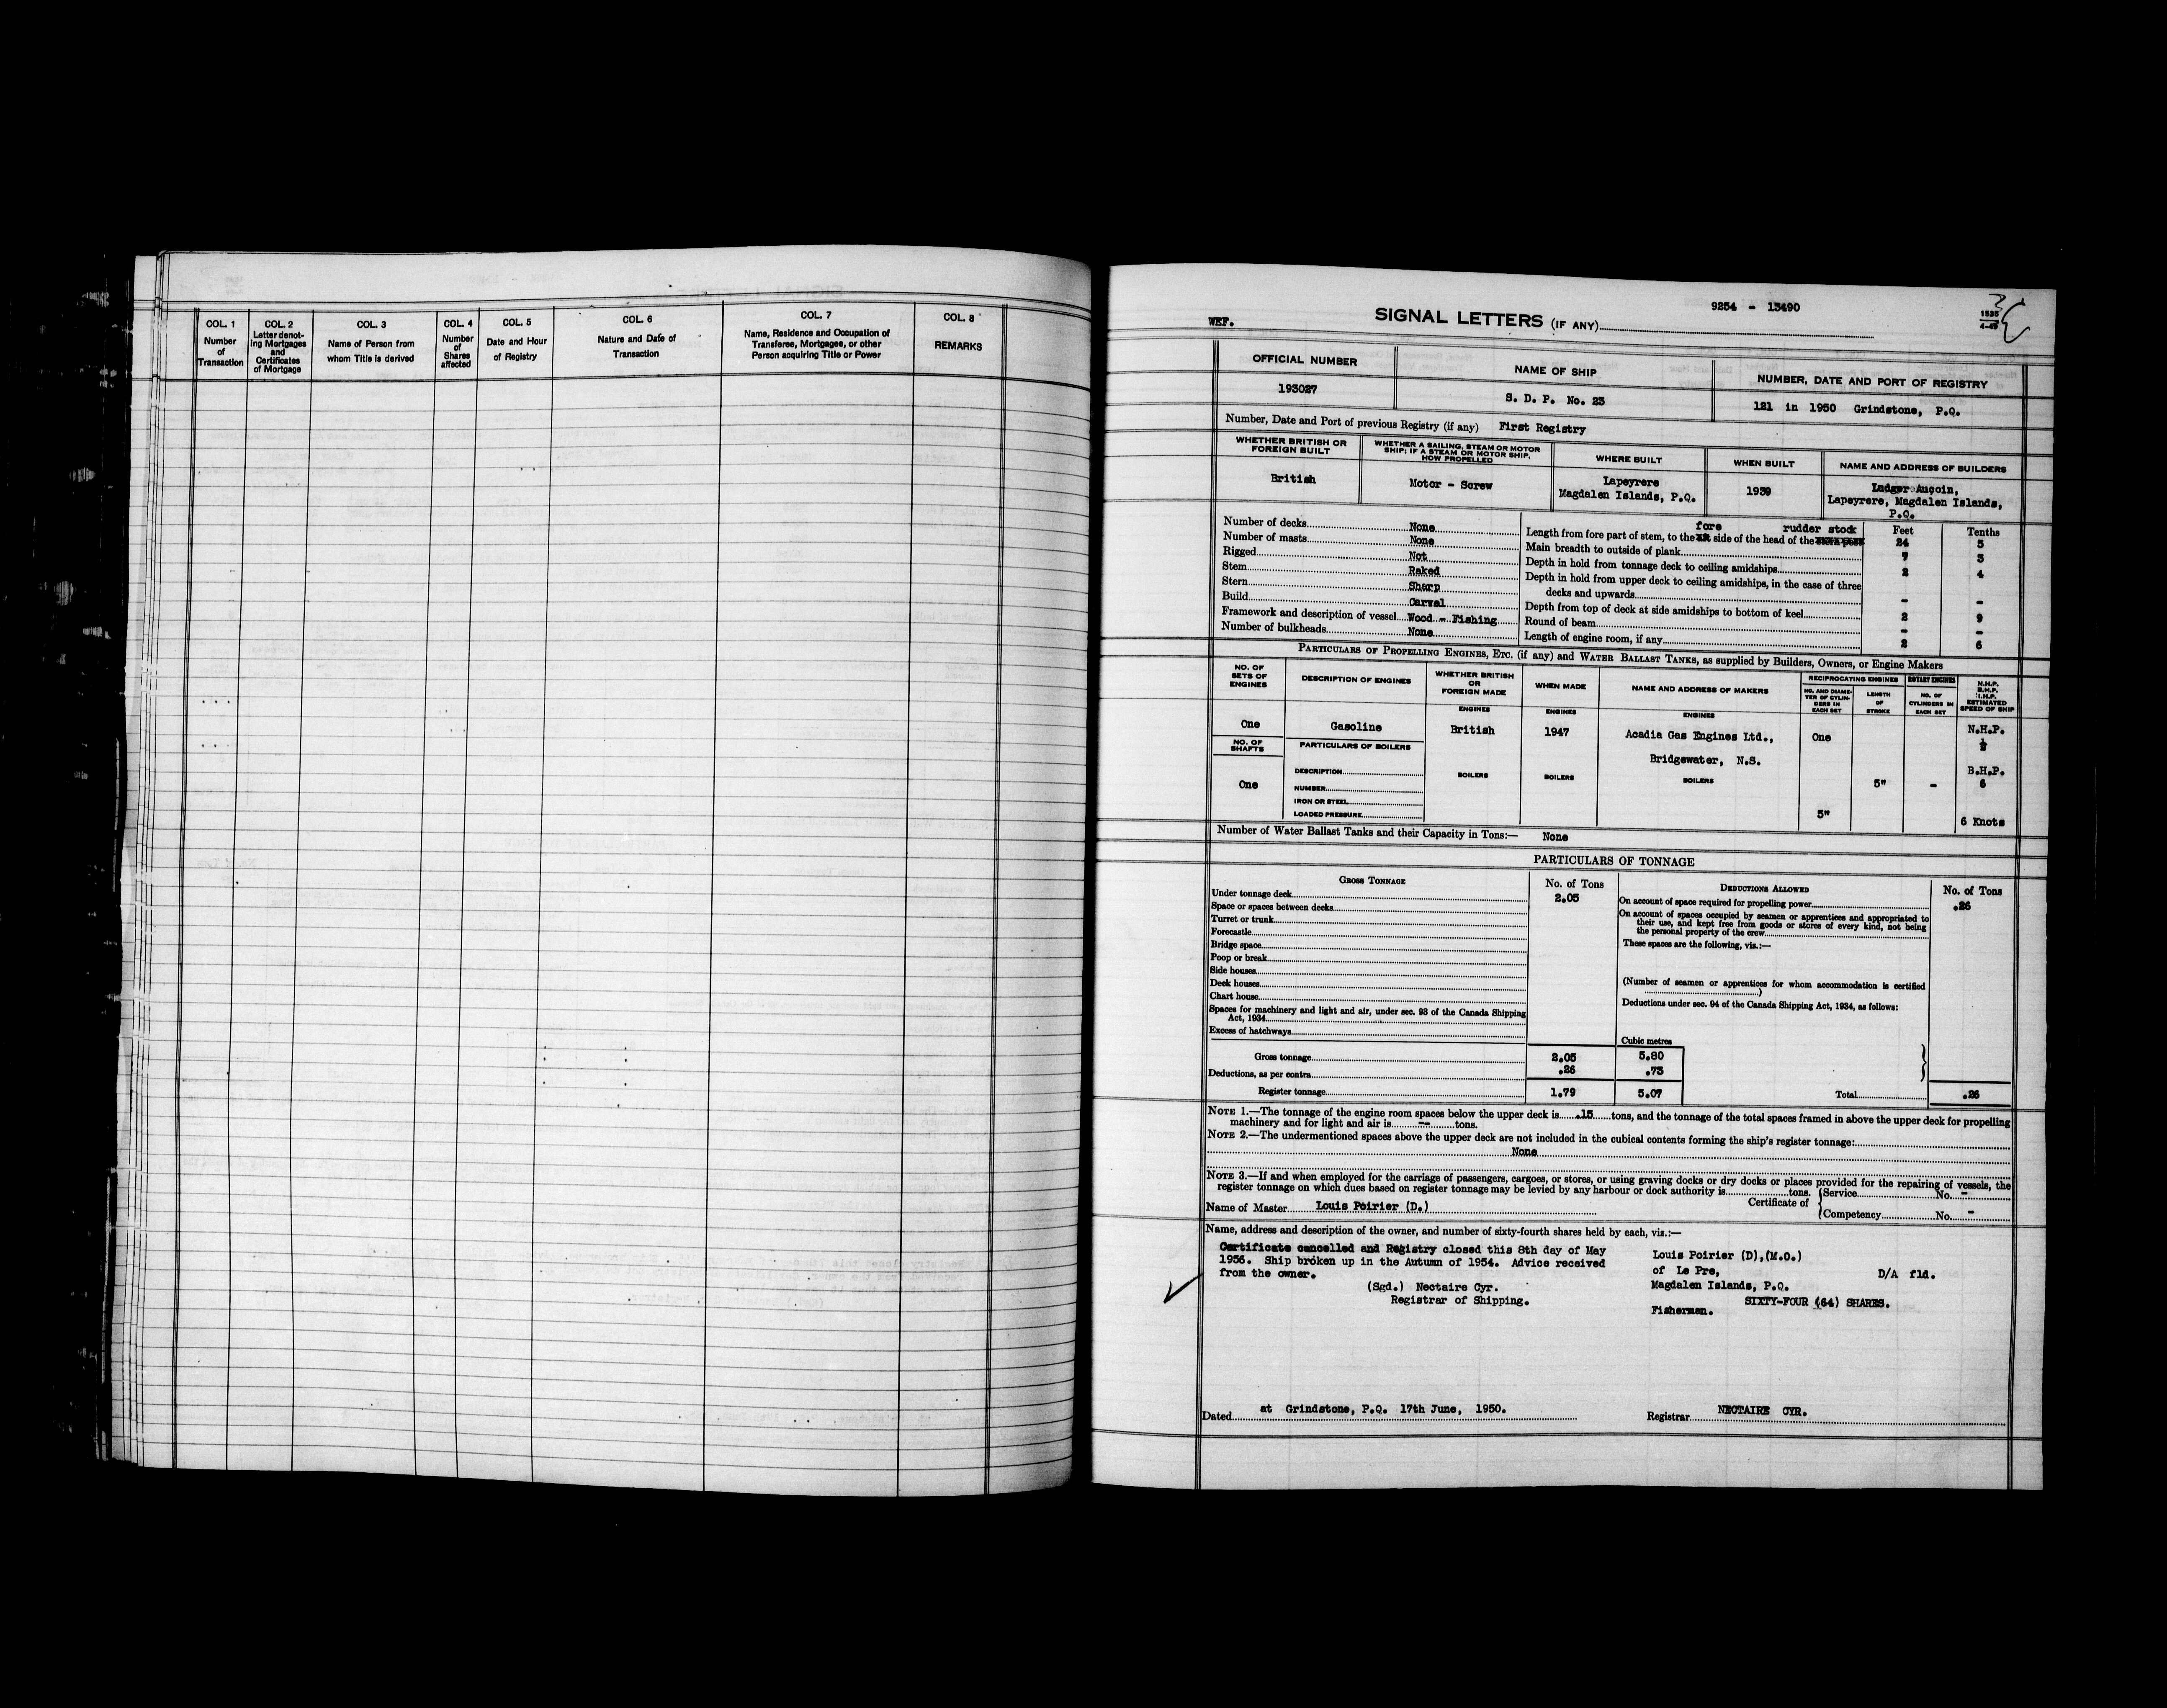 COL. 1
Number
of
Transaction
COL. 2
Letter denot-
ing Mortgages
and
Certificates
of Mortgage
COL. 3
Name of Person from
whom Title is derived
COL. 4
Number
of
Shares
affected
COL. 5
Date and Hour
of Registry
COL. 6
Nature and Date of
Transaction
COL. 7
Name, Residence and Occupation of
Transferee, Mortgagee, or other
Person acquiring Title or Power
COL. 8
REMARKS
9254 - 13490
WEF.
SIGNAL LETTERS (IF ANY)
1535
4-49
OFFICIAL NUMBER
193027
NAME OF SHIP
S. D. P. No. 23
NUMBER, DATE AND PORT OF REGISTRY
121 in 1950 Grindstone, P.Q.
Number, Date and Port of previous Registry (if any) First Registry
WHETHER BRITISH OR
FOREIGN BUILT
British
WHETHER A SAILING, STEAM OR MOTOR
SHIP; IF A STEAM OR MOTOR SHIP,
HOW PROPELLED
Motor - Screw
WHERE BUILT
Lapeyrere
Magdalen Islands, P.Q.
WHEN BUILT
1939
NAME AND ADDRESS OF BUILDERS
Ludger Aucoin,
Lapeyrere, Magdalen Islands,
P.Q.
Number of decks None
Number of masts None
Rigged Not
Stem Raked
Stern Sharp
Build Carvel
Framework and description of vessel Wood - Fishing
Number of bulkheads None
Feet Tenths
fore rudder stock
Length from fore part of stem, to the aft side of the head of the stern post 24 5
Main breadth to outside of plank 7 3
Depth in hold from tonnage deck to ceiling amidships 2 4
Depth in hold from upper deck to ceiling amidships, in the case of three
decks and upwards - -
Depth from top of deck at side amidships to bottom of keel 2 9
Round of beam - -
Length of engine room, if any 2 6
PARTICULARS OF PROPELLING ENGINES, ETC. (if any) and WATER BALLAST TANKS, as supplied by Builders, Owners, or Engine Makers
NO. OF
SETS OF
ENGINES
One
NO. OF
SHAFTS
One
DESCRIPTION OF ENGINES
Gasoline
PARTICULARS OF BOILERS
DESCRIPTION
NUMBER
IRON OR STEEL
LOADED PRESSURE
WHETHER BRITISH
OR
FOREIGN MADE
ENGINES
British
BOILERS
WHEN MADE
ENGINES
1947
BOILERS
NAME AND ADDRESS OF MAKERS
ENGINES
Acadia Gas Engines Ltd.,
Bridgewater, N.S.
BOILERS
RECIPROCATING ENGINES
NO. AND DIAME-
TER OF CYLIN-
DERS IN
EACH SET
One
5"
LENGTH
OF
STROKE
5"
ROTARY ENGINES
NO. OF
CYLINDERS IN
EACH SET
-
N.H.P.
B.H.P.
I.H.P.
ESTIMATED
SPEED OF SHIP
N.H.P.
B.H.P.
6
6 Knots
Number of Water Ballast Tanks and their Capacity in Tons:— None
PARTICULARS OF TONNAGE
GROSS TONNAGE No. of Tons
Under tonnage deck 2.05
Space or spaces between decks
Turret or trunk
Forecastle
Bridge space
Poop or break
Side houses
Deck houses
Chart house
Spaces for machinery and light and air, under sec. 93 of the Canada Shipping
Act, 1934
Excess of hatchways
Cubic metres
Gross tonnage 2.05 5.80
Deductions, as per contra .26 .73
Register tonnage 1.79 5.07
DEDUCTIONS ALLOWED No. of Tons
On account of space required for propelling power .26
On account of spaces occupied by seamen or apprentices and appropriated to
their use, and kept free from goods or stores of every kind, not being
the personal property of the crew
These spaces are the following, viz.:—
(Number of seamen or apprentices for whom accommodation is certified
)
Deductions under sec. 94 of the Canada Shipping Act, 1934, as follows:
Total .26
NOTE 1.—The tonnage of the engine room spaces below the upper deck is .15 tons, and the tonnage of the total spaces framed in above the upper deck for propelling
machinery and for light and air is -- tons.
NOTE 2.—The undermentioned spaces above the upper deck are not included in the cubical contents forming the ship's register tonnage:
None
NOTE 3.—If and when employed for the carriage of passengers, cargoes, or stores, or using graving docks or dry docks or places provided for the repairing of vessels, the
register tonnage on which dues based on register tonnage may be levied by any harbour or dock authority is tons.
Name of Master Louis Poirier (D.)
Certificate of
Service No. -
Competency No. -
Name, address and description of the owner, and number of sixty-fourth shares held by each, viz.:—
Certificate cancelled and Registry closed this 8th day of May
1956. Ship broken up in the Autumn of 1954. Advice received
from the owner.
(Sgd.) Nectaire Cyr.
Registrar of Shipping.
Louis Poirier (D),(M.O.)
of Le Pre, D/A fld.
Magdalen Islands, P.Q.
SIXTY-FOUR (64) SHARES.
Fisherman.
Dated at Grindstone, P.Q. 17th June, 1950.
Registrar NECTAIRE CYR.